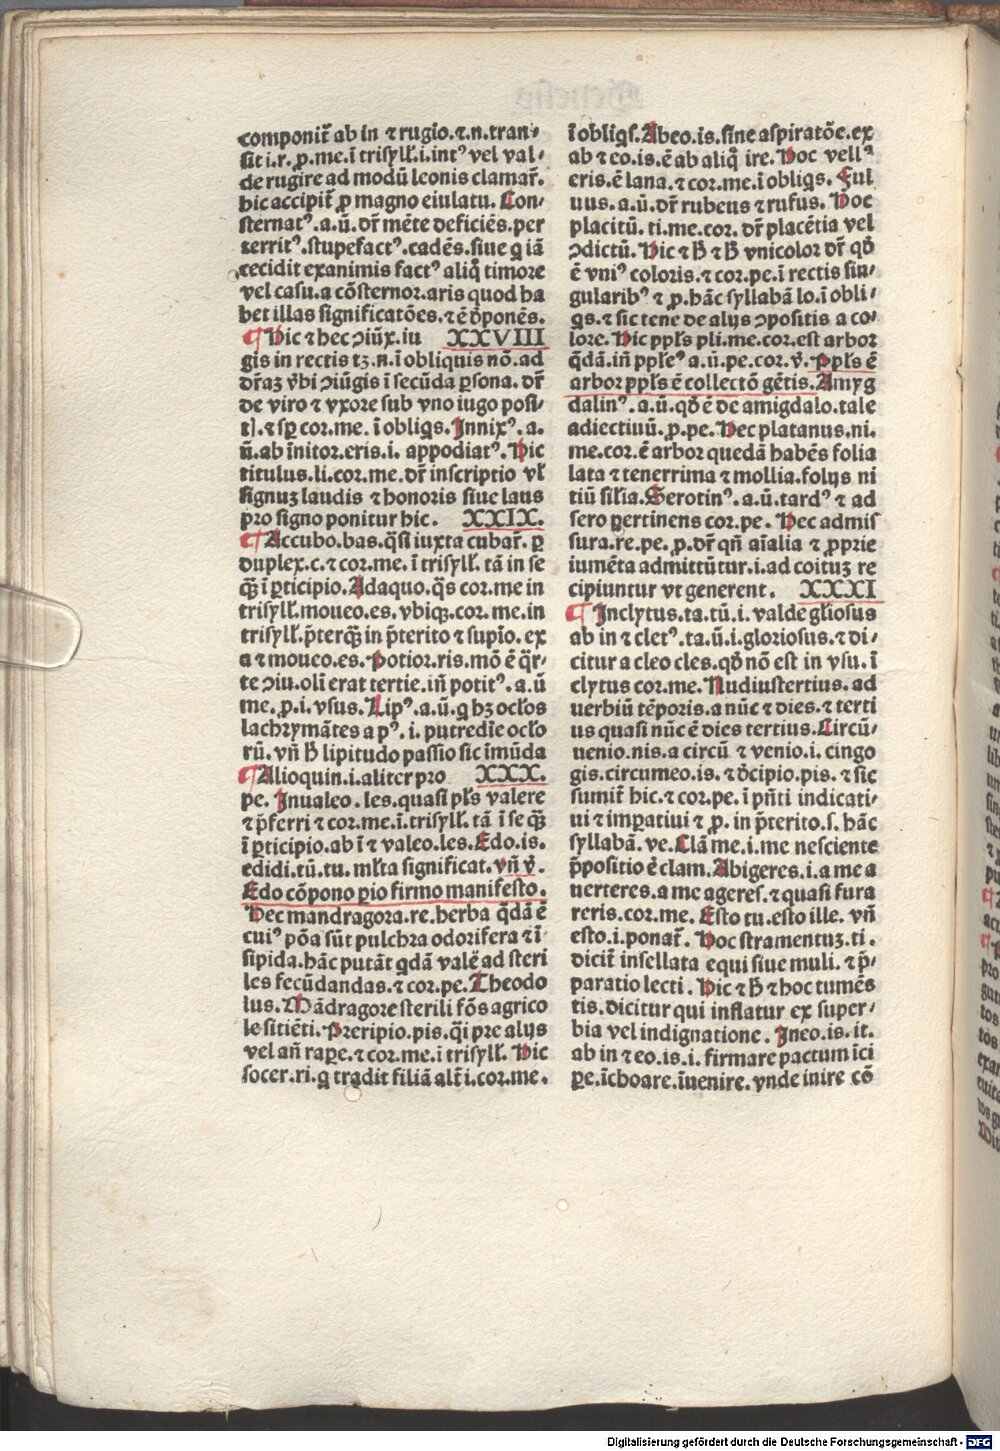 componit᷑ ab in ⁊ rugio.⁊.n.tran⸗
sit i.r.ꝓ.me.ī trisyll̄.i.intꝰ vel val⸗
de rugire ad modū leonis clamar᷑.
hic accipit᷑ ꝓ magno eiulatu. Con⸗
sternatꝰ.a.ū.dr̄ mēte deficiēs.per
territꝰ.stupefactꝰ.cadēs.siue q iā
cecidit exanimis factꝰ aliq̄ timore
vel casu.a cōsternor.aris quod ha
bet illas significatōes.⁊ ē dponēs.
¶ Hic ⁊ hec ↄiūx.iu XXVIII
gis in rectis tꝫ.n.ī obliquis nō.ad
dr̄aꝫ v̄bi ↄiūgis ī secūda ꝑsona. dr̄
de viro ⁊ vxore sub vno iugo posi⸗
t].⁊ sꝑ cor.me. ī obliqs. Innixꝰ.a.
ū.ab īnitor.eris.i. appodiatꝰ. Hic
titulus.li.cor.me.dr̄ inscriptio vl̄
signuꝫ laudis ⁊ honoris siue laus
pro signo ponitur hic. XXIX.
¶ Accubo.bas.q̄si iuxta cubar᷑. ꝑ
duplex.c.⁊ cor.me. ī trisyll̄. tā in se
q̄ꝫ ī ꝑticipio. Adaquo.q̄s cor.me in
trisyll̄.moueo.es.vbiqꝫ.cor.me.in
trisyll̄.p̄terq̄ꝫ in p̄terito ⁊ supīo. ex
a ⁊ moueo.es. Potior.ris.mō ē q̄r⸗
te ↄiu.oli erat tertie.iñ potitꝰ.a.ū
me.ꝓ.i.vsus. Lipꝰ.a.ū.q hꝫ ocl̄os
lachrymātes a pꝰ.i. putredīe ocl̄o
rū.vñ h̄ lipitudo passio sic īmūda
¶ Alioquin.i.aliter pro XXX.
pe. Inualeo.les.quasi pl̄s valere
⁊ p̄ferri ⁊ cor.me.ī.trisyll̄. tā ī se q̄ꝫ
ī ꝑticipio.ab ī ⁊ valeo.les. Edo.is.
edidi.tū.tu. ml̄ta significat.vñ v̄.
Edo cōpono ꝑio firmo manifesto.
Hec mandragora.re.herba q̄dā ē
cuiꝰ pōa sūt pulchra odorifera ⁊ ī⸗
sipida.hāc putāt qdā valē ad steri
les fecūdandas.⁊ cor.pe. Theodo
lus. Mādragore sterili fōs agrico
le sitiēti. Preripio.pis.q̄i pre alijs
vel añ rape.⁊ cor.me.ī trisyll̄. Hic
socer.ri.q tradit filiā alt᷑i.cor.me.
ī obliqs. Abeo.is.sine aspiratōe.ex
ab ⁊ eo.is.ē ab aliq̄ ire. Hoc vellꝰ
eris.ē lana.⁊ cor.me.ī obliqs. Ful
uus.a.ū.dr̄ rubeus ⁊ rufus. Hoc
placitū.ti.me.cor. dr̄ placētia vel
ↄdictū. Hic ⁊ h̄ ⁊ h̄ vnicolor dr̄ qd̄
ē vniꝰ coloris.⁊ cor.pe.ī rectis sin⸗
gularibꝰ ⁊ ꝓ.hāc syllabā lo.ī obli⸗
qs.⁊ sic tene de alijs ↄpositis a co⸗
lore. Hic ppl̄s pli.me.cor.est arbor
q̄dā.iñ pplēꝰ a.ū.pe.cor.v̄. Ppl̄s ē
arbor ppl̄s ē collectō gētis. Amyg
dalinꝰ.a.ū.qd̄ ē de amigdalo.tale
adiectiuū.ꝓ.pe. Hec platanus.ni.
me.cor.ē arbor quedā habēs folia
lata ⁊ tenerrima ⁊ mollia.folijs ni
tiū silīa. Serotinꝰ.a.ū.tardꝰ ⁊ ad
sero ꝑtinens cor.pe. Hec admis
sura.re.pe.ꝓ.dr̄ qñ aīalia ⁊ ꝓprie
iumēta admittūtur.i.ad coituꝫ re
cipiuntur vt generent. XXXI
¶ Inclytus.ta.tū.i. valde gl̄iosus
ab in ⁊ cletꝰ.ta.ū.i.gloriosus.⁊ di⸗
citur a cleo cles.qd̄ nō est in vsu. ī
clytus cor.me. Nudiustertius. ad
uerbiū tēporis.a nūc ⁊ dies.⁊ terti
us quasi nūc ē dies tertius. Circū⸗
uenio.nis.a circū ⁊ venio.i. cingo
gis.circumeo.is.⁊ dcipio.pis.⁊ sic
sumit᷑ hic.⁊ cor.pe.ī pn̄ti indicati⸗
ui ⁊ imꝑatiui ⁊ ꝓ. in p̄terito.s. hāc
syllabā. ve. Clā me.i.me nesciente
p̄positio ē clam. Abigeres.i.a me a
uerteres.a me ageres.⁊ quasi fura
reris.cor.me. Esto tu.esto ille. vñ
esto.i.ponat᷑. Hoc stramentuꝫ.ti.
dicit᷑ insellata equi siue muli. ⁊ p̄⸗
paratio lecti. Hic ⁊ h̄ ⁊ hoc tumēs
tis.dicitur qui inflatur ex super⸗
bia vel indignatione. Ineo.is.it.
ab in ⁊ eo.is.i. firmare pactum īci
ꝑe.īchoare.īuenire.vnde inire cō
Digitalisierung gefördert durch die Deutsche Forschungsgemeinschaft - DFG